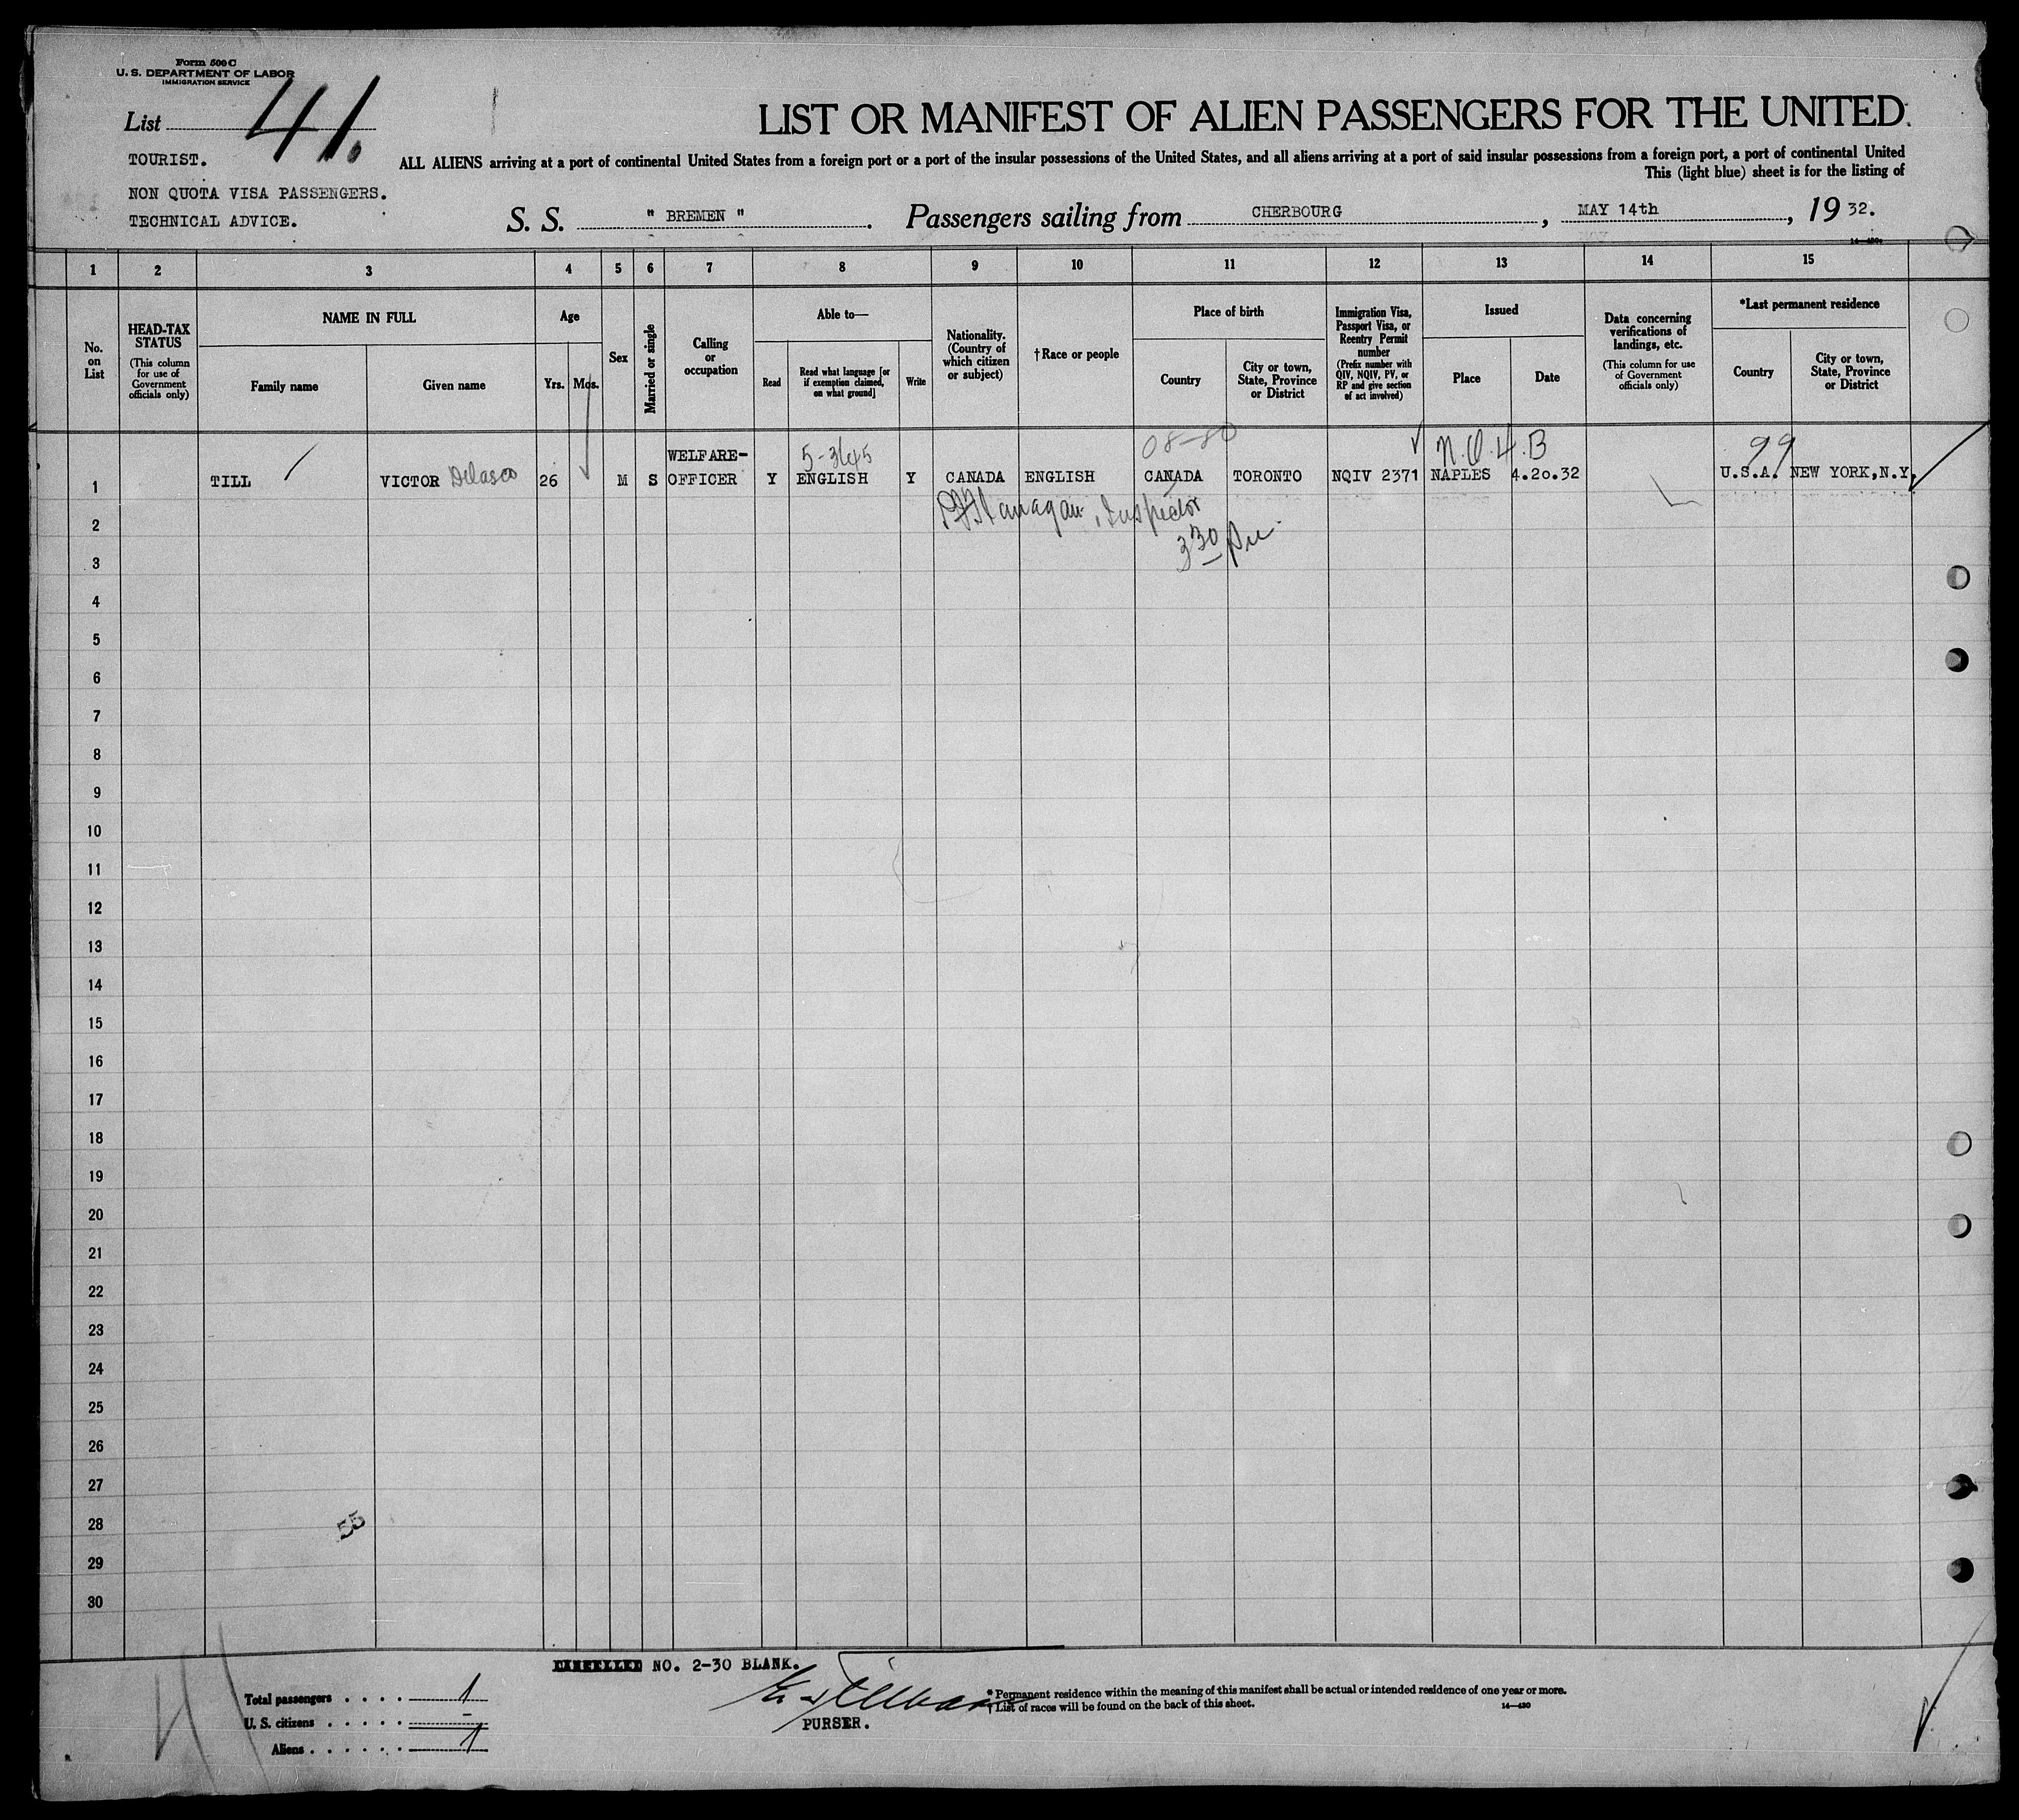 Form 500 C
U. S. DEPARTMENT OF LABOR
IMMIGRATION SERVICE
List 41.
LIST OR MANIFEST OF ALIEN PASSENGERS FOR THE UNITED
TOURIST.
ALL ALIENS arriving at a port of continental United States from a foreign port or a port of the insular possessions of the United States, and all aliens arriving at a port of said insular possessions from a foreign port, a port of continental United
This (light blue) sheet is for the listing of
NON QUOTA VISA PASSENGERS.
TECHNICAL ADVICE.
S. S. " BREMEN ". Passengers sailing from CHERBOURG, MAY 14th, 19 32.
1 2 3 4 5 6 7 8 9 10 11 12 13 14 15
No. on List
HEAD-TAX STATUS
(This column for use of Government officials only)
NAME IN FULL
Family name
Given name
Age
Yrs. Mos.
Sex
Married or single
Calling or occupation
Able to—
Read
Read what language [or if exemption claimed, on what ground]
Write
Nationality. (Country of which citizen or subject)
†Race or people
Place of birth
Country
City or town, State, Province or District
Immigration Visa, Passport Visa, or Reentry Permit number
(Prefix number with QIV, NQIV, PV, or RP and give section of act involved)
Issued
Place
Date
Data concerning verifications of landings, etc.
(This column for use of Government officials only)
*Last permanent residence
Country
City or town, State, Province or District
WELFARE- 5-3645 08-80 N.O.4.B 99
1 TILL VICTOR 26 M S OFFICER Y ENGLISH Y CANADA ENGLISH CANADA TORONTO NQIV 2371 NAPLES 4.20.32 U.S.A. NEW YORK,N.Y.
Flanagan, Inspector
2
3 30
3
4
5
6
7
8
9
10
11
12
13
14
15
16
17
18
19
20
21
22
23
24
25
26
27
28
55
29
30
NO. 2-30 BLANK.
PURSER.
Total passengers . . . . 1
U. S. citizens . . . . . -
Aliens . . . . . . 1
* Permanent residence within the meaning of this manifest shall be actual or intended residence of one year or more.
† List of races will be found on the back of this sheet.
14—430